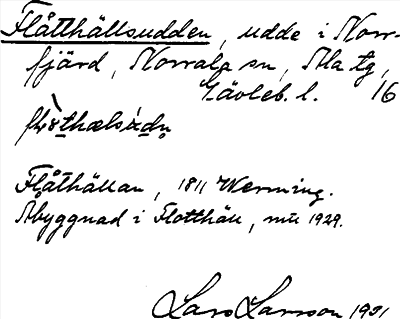 Flåtthällsudden, udde i Norr-
fjärd, Norrala sn, Ala tg,
Gävleb. l. 16
Flåthällan, 1811 Werming.
Åbyggnad i Flotthäll, mtl 1929.
Lars Larsson 1931